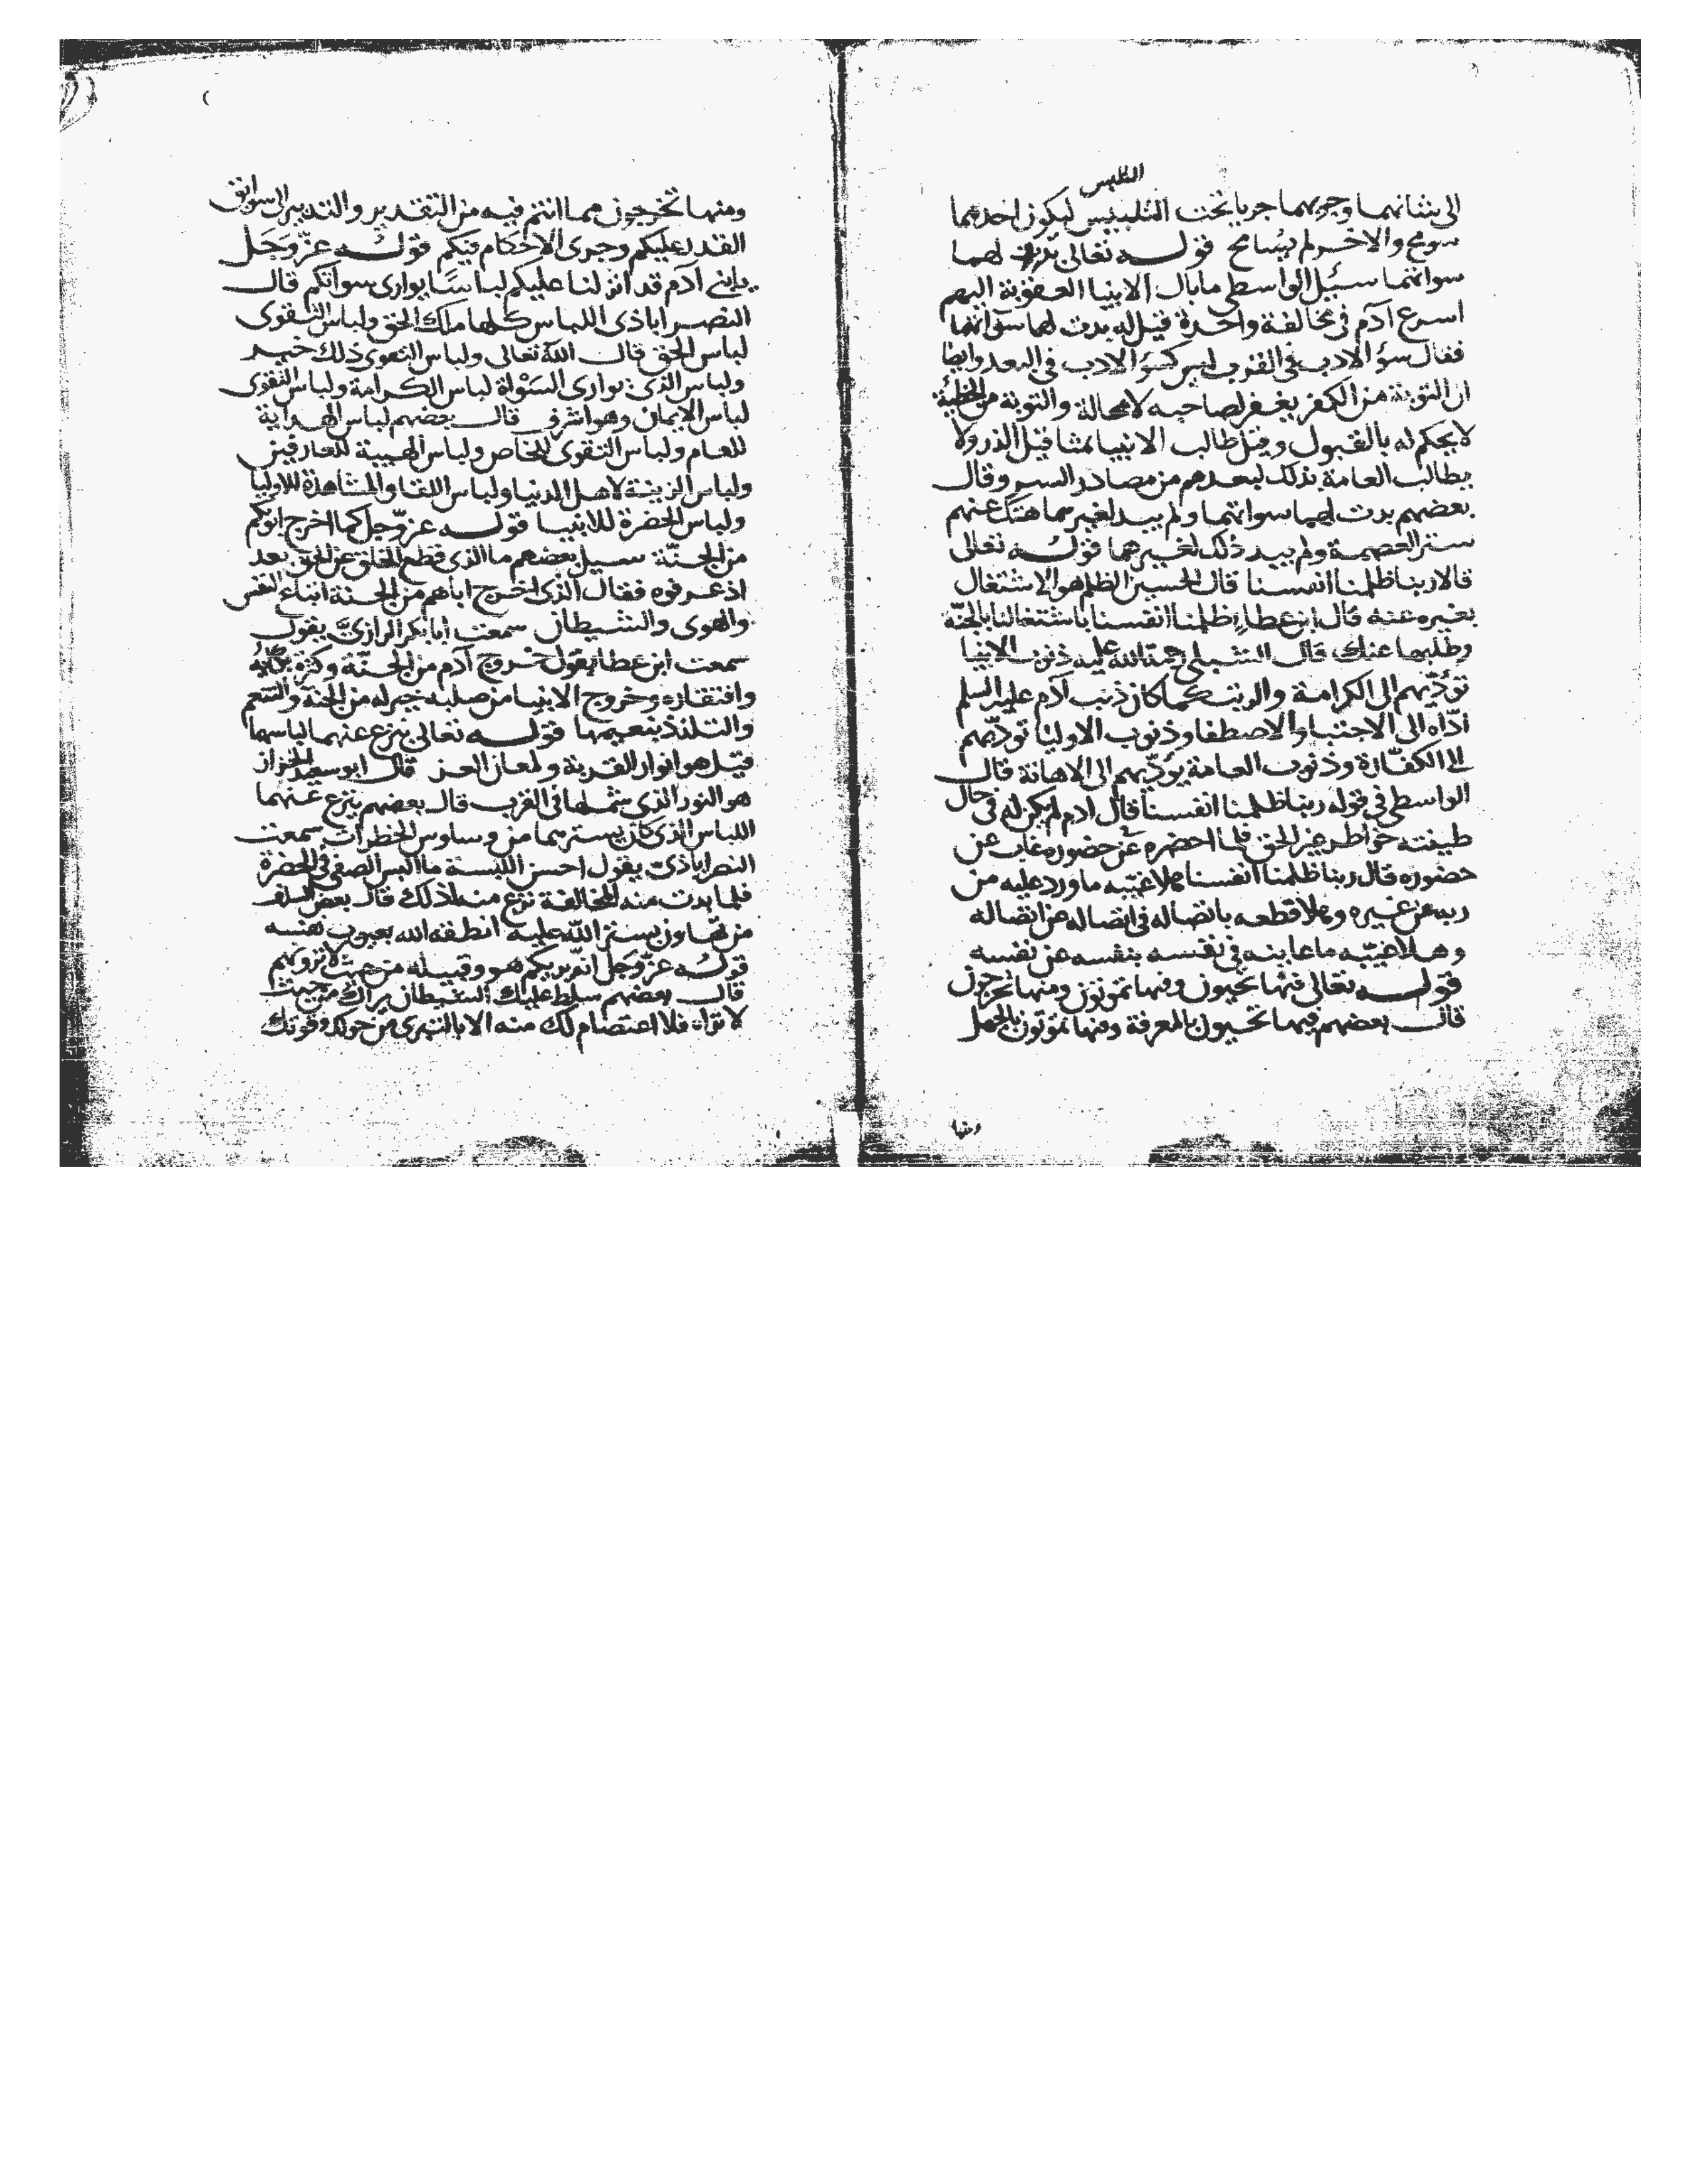 التلبيس
الى شانهما وجريهما جريا تحت التلبيس ليكون احدهما
سومح والاخر لم يسامح قوله تعالى بدت لهما
سواتهما سئيل الواسطى ما بال الانبيا العقوبة اليهم
اسرع آدم فى مخالفة واحدة قيل له بدت لهما سواتهما
فقال سؤ الادب فى القرب ليس كسؤ الادب فى البعد وايضا
ان التوبة من الكفر يغفر لصاحبه لا محالة والتوبة من الخطيئة
لا يحكم له بالقبول وقيل طالب الانبيا بمثاقيل الذر ولا
يطالب العامة بذلك لبعدهم من مصادر السر وقال
بعضهم بدت لهما سواتهما ولم يبد لغيرهما هتك عنهم
ستر العصمة ولم يبد ذلك لغيرهما قوله تعالى
قالا ربنا ظلمنا انفسنا قال الحسين الظلم هو الاشتغال
بغيره عنه قال ابن عطاء ظلمنا انفسنا باشتغالنا بالجنّة
وطلبها عنك قال الشبلى رحمة الله عليه ذنوب الانبيا
تؤدّيهم الى الكرامة والرتب كما كان ذنب آدم عليه السلم
ادّاه الى الاجتبا والاصطفا وذنوب الاوليا تودّيهم
الى الكفّارة وذنوب العامة يؤدّيهم الى الاهانة قال
الواسطى فى قوله ربنا ظلمنا انفسنا قال ادم لم يكن له فى حال
طينته خواطر غير الحق فلما احضره عن حضوره غاب عن
حضوره قال ربنا ظلمنا انفسنا هلا غيّبه ما ورد عليه من
ربه عن غيره وهلا قطعه باتصاله فى اتصاله عن اتصاله
وهلا غيّبه ما عاينه فى نفسه بنفسه عن نفسه
قوله تعالى فيها تحيون وفيها تموتون ومنها تخرجون
قال بعضهم فيها تحيون بالمعرفة وفيها تموتون بالجهل
ومنها
ومنها تخرجون مما انتم فيه من التقدير والتدبير الى سوابق
القدر عليكم وجرى الاحكام فيكم قوله عزّ وجَل
يا بنى آدم قد انزلنا عليكم لباسًا يوارى سواتكم قال
النصراباذى اللباس كلها ملك الحق ولباس التقوى
لباس الحق قال الله تعالى ولباس التقوى ذلك خير
ولباس الذى يوارى السَوْاة لباس الكرامة ولباس التقوى
لباس الايمان وهو اشرف قال بعضهم لباس الهداية
للعام ولباس التقوى للخاص ولباس الهيبة للعارفين
ولباس الزينة لاهل الدنيا ولباس اللقا والمشاهدة للاوليا
ولباس الحضرة للانبيا قوله عزّ وجل كما اخرج ابويكم
من الجنّة سيل بعضهم ما الذى قطع الخلق عن الحق بعد
اذ عرفوه فقال الذى اخرج اباهم من الجنة اتباع النفس
والهوى والشيطان سمعت ابا بكر الرازىّ يقول
سمعت ابن عطا يقول خروج آدم من الجنّة وكثرة بكايه
وافتقاره وخروج الانبيا من صلبه خير له من الجنة والتنعم
والتلذذ بنعيمها قوله تعالى ينزع عنهما لباسهما
قيل هو انوار القربة ولمعان العز قال ابو سعيد الخراز
هو النور الذى شملها فى القرب قال بعضهم ينزع عنهما
اللباس الذى كان يسترهما من وساوس الخطرات سمعت
النصراباذىّ يقول احسن اللبسة ما البس الصفى فى الحضرة
فلما بدت منه المخالفة نزع منه لذلك قال بعض السلف
من تهاون بستر الله عليه انطقه الله بعيوب نفسه
قوله عزّ وجَلّ انّه يريكم هو وقبيله من حيث لا ترونهم
قال بعضهم سلط عليك الشيطان يراك من حيث
لا تراه فلا اعتصام لك منه الا بالتبرى من حولك وقوتك